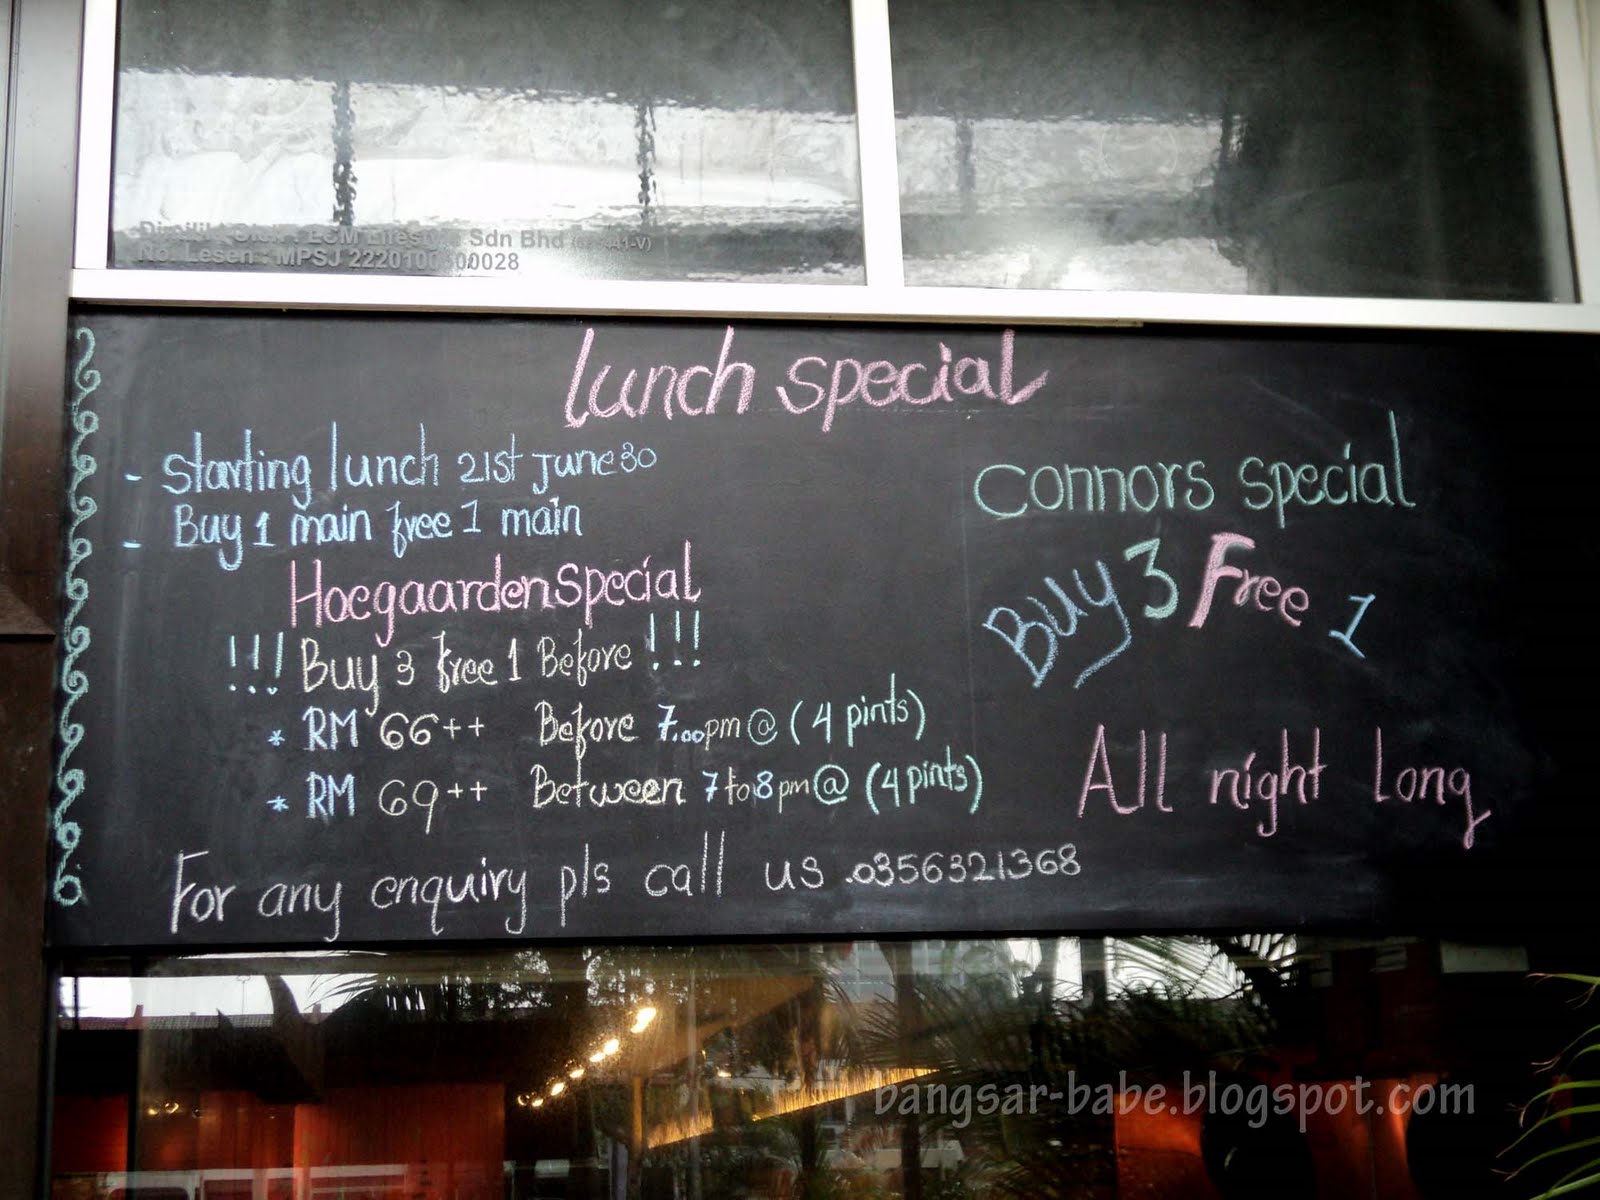 Lifestyle Sdn Bhd
No. Lesen : MPSJ
lunch special
- Starting lunch 21st June 30
- Buy 1 main free 1 main
Hoegaarden Special
!!! Buy 3 free 1 Before !!!
* RM 66++ Before 7.00pm @ (4 pints)
* RM 69++ Between 7 to 8pm @ (4 pints)
Connors special
Buy 3 Free 1
All night Long
For any enquiry pls call us .0356321368
bangsar-babe.blogspot.com